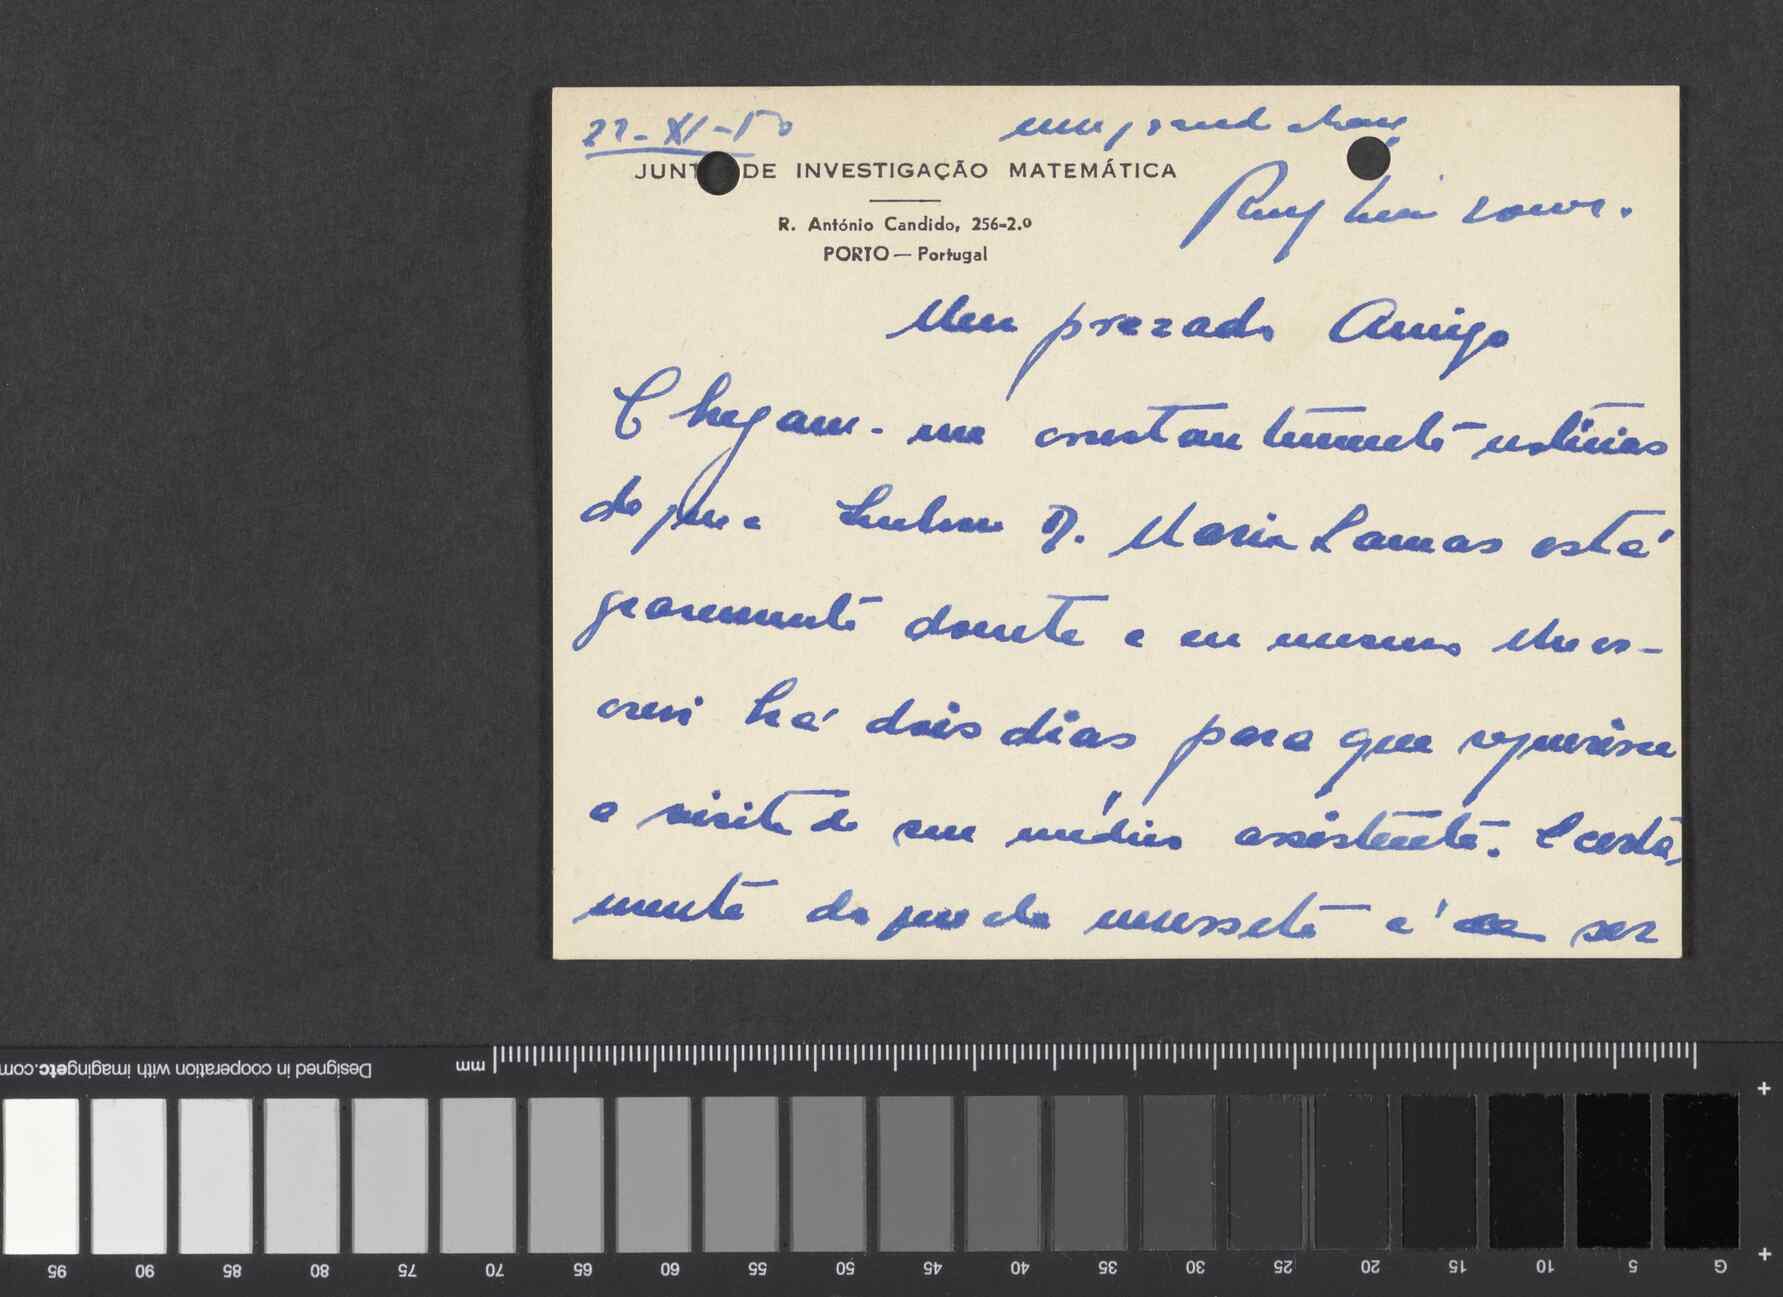 22-XI-50
um grand abraç
JUNT DE INVESTIGAÇÃO MATEMÁTICA
Ruy Luis Gomes.
R. António Candido, 256-2.º
PORTO — Portugal
Meu prezado Amigo
Chegam-me constantemente notícias
de que a Senhora D. Maria Lamas está
gravemente doente e eu mesmo lhe es-
crevi há dois dias para que requeresse
a visita do seu médico assistente. Certa-
mente do que ela necessita é ser
mm
Designed in cooperation with imagingetc.com
95 90 85 80 75 70 65 60 55 50 45 40 35 30 25 20 15 10 5 G